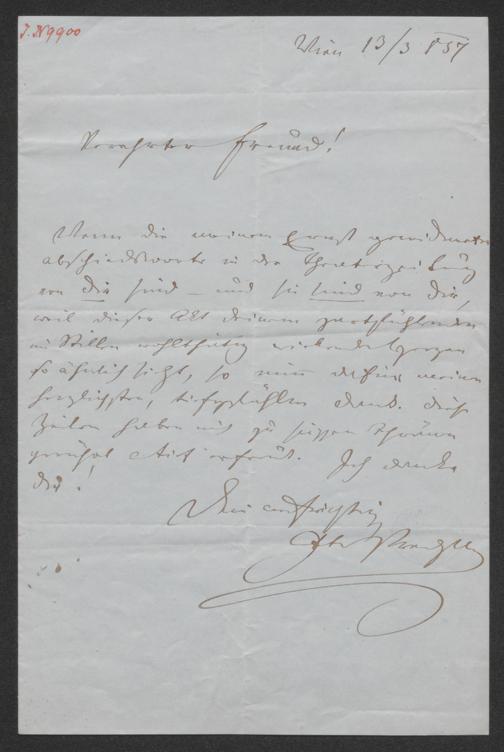 J.N 9900
Wien 13/3 857
Verehrter Freund!
Wenn die meinem Ernst gewidmeten
Abschiedsworte in der Theaterzeitung
von dir sind – und sie sind von dir,
weil dieser Akt deinem zartfühlenden
im Stillen wohlthätig wirkenden Herzen
so ähnlich sieht, so nimm dafür meinen
herzlichsten, tiefgefühlten Dank. Diese
Zeilen haben mich zu süssen Thränen
gerührt. Ich danke
dir!
Dein aufrichtiger